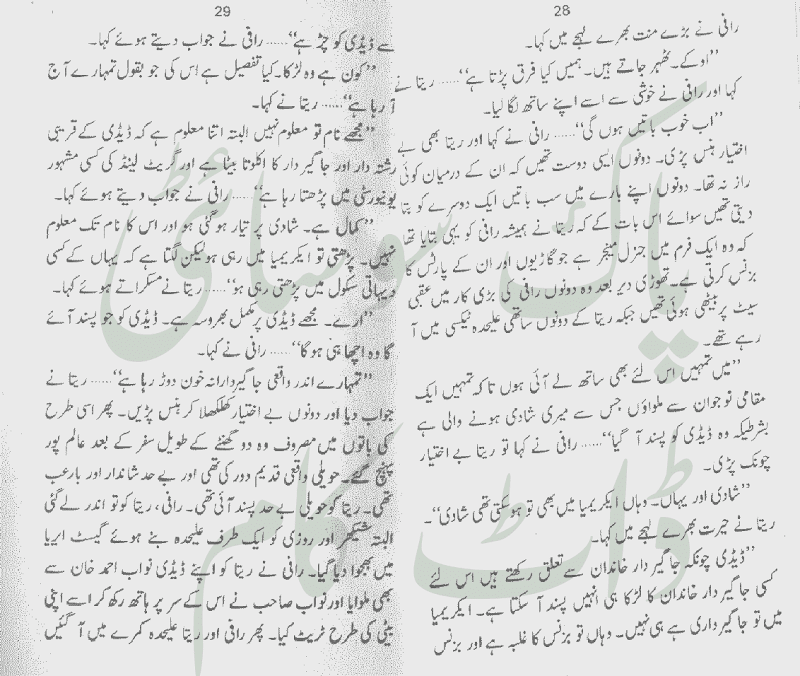 28
رافی نے بڑے منت بھرے لہجے میں کہا۔
”اوکے۔ ٹھہر جاتے ہیں۔ ہمیں کیا فرق پڑتا ہے“...... ریتا نے
کہا اور رافی نے خوشی سے اسے اپنے ساتھ لگا لیا۔
”اب خوب باتیں ہوں گی“...... رافی نے کہا اور ریتا بھی بے
اختیار ہنس پڑی۔ دونوں ایسی دوست تھیں کہ ان کے درمیان کوئی
راز نہ تھا۔ دونوں اپنے بارے میں سب باتیں ایک دوسرے کو بتا
دیتی تھیں سوائے اس بات کے کہ ریتا نے ہمیشہ رافی کو یہی بتایا تھا
کہ وہ ایک فرم میں جنرل مینجر ہے جو گاڑیوں اور ان کے پارٹس کا
بزنس کرتی ہے۔ تھوڑی دیر بعد وہ دونوں رافی کی بڑی کار میں عقبی
سیٹ پر بیٹھی ہوئی تھیں جبکہ ریتا کے دونوں ساتھی علیحدہ ٹیکسی میں آ
رہے تھے۔
”میں تمہیں اس لئے بھی ساتھ لے آئی ہوں تا کہ تمہیں ایک
مقامی نوجوان سے ملواؤں جس سے میری شادی ہونے والی ہے
بشرطیکہ وہ ڈیڈی کو پسند آ گیا“...... رافی نے کہا تو ریتا بے اختیار
چونک پڑی۔
”شادی اور یہاں۔ وہاں ایکریمیا میں بھی تو ہو سکتی تھی شادی“۔
ریتا نے حیرت بھرے لہجے میں کہا۔
”ڈیڈی چونکہ جاگیر دار خاندان سے تعلق رکھتے ہیں اس لئے
کسی جاگیر دار خاندان کا لڑکا ہی انہیں پسند آ سکتا ہے۔ ایکریمیا
میں تو جاگیر داری ہے ہی نہیں۔ وہاں تو بزنس کا غلبہ ہے اور بزنس
29
سے ڈیڈی کو چڑ ہے“...... رافی نے جواب دیتے ہوئے کہا۔
”کون ہے وہ لڑکا۔ کیا تفصیل ہے اس کی جو بقول تمہارے آج
آ رہا ہے“...... ریتا نے کہا۔
”مجھے نام تو معلوم نہیں البتہ اتنا معلوم ہے کہ ڈیڈی کے قریبی
رشتہ دار اور جاگیر دار کا اکلوتا بیٹا ہے اور گریٹ لینڈ کی کسی مشہور
یونیورسٹی میں پڑھتا رہا ہے“...... رافی نے جواب دیتے ہوئے کہا۔
”کمال ہے۔ شادی پر تیار ہو گئی ہو اور اس کا نام تک معلوم
نہیں۔ پڑھتی تو ایکریمیا میں رہی ہو لیکن لگتا ہے کہ یہاں کے کسی
دیہاتی سکول میں پڑھتی رہی ہو“...... ریتا نے مسکراتے ہوئے کہا۔
”ارے۔ مجھے ڈیڈی پر مکمل بھروسہ ہے۔ ڈیڈی کو جو پسند آئے
گا وہ اچھا ہی ہو گا“...... رافی نے کہا۔
”تمہارے اندر واقعی جاگیردارانہ خون دوڑ رہا ہے“...... ریتا نے
جواب دیا اور دونوں بے اختیار کھلکھلا کر ہنس پڑیں۔ پھر اسی طرح
کی باتوں میں مصروف وہ دو گھنٹے کے طویل سفر کے بعد عالم پور
پہنچ گئے۔ حویلی واقعی قدیم دور کی تھی اور بے حد شاندار اور بارعب
تھی۔ ریتا کو حویلی بے حد پسند آئی تھی۔ رافی، ریتا کو تو اندر لے گئی
البتہ شیکھر اور روزی کو ایک طرف علیحدہ بنے ہوئے گیسٹ ایریا
میں بھجوا دیا گیا۔ رافی نے ریتا کو اپنے ڈیڈی نواب احمد خان سے
بھی ملوایا اور نواب صاحب نے اس کے سر پر ہاتھ رکھ کر اسے اپنی
بیٹی کی طرح ٹریٹ کیا۔ پھر رافی اور ریتا علیحدہ کمرے میں آ گئیں